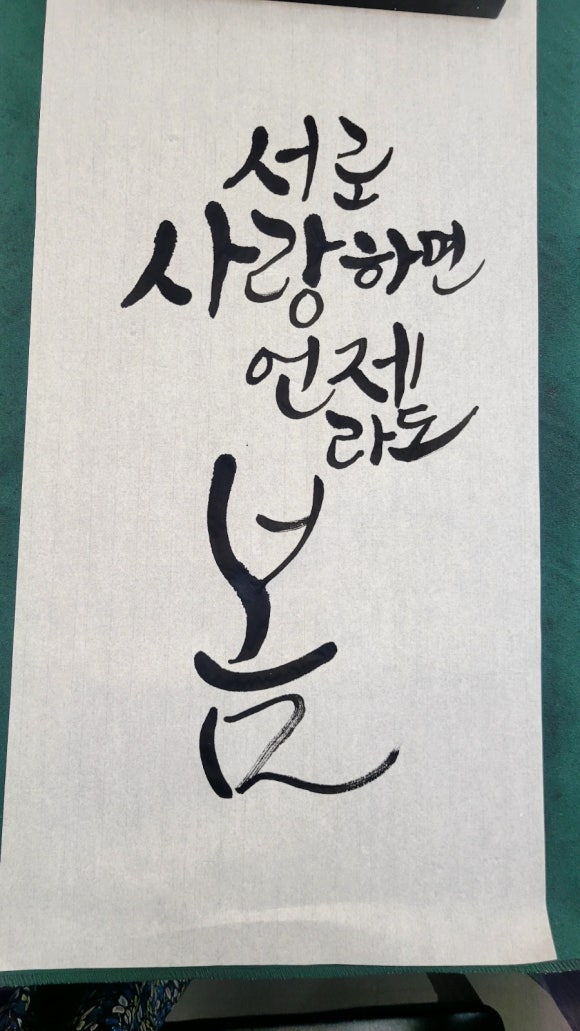 서로
사랑하면
언제
라도
봄